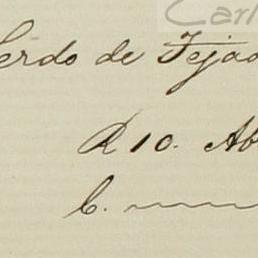 Carl
Lerdo de Tejad
R 10. Ab
C.